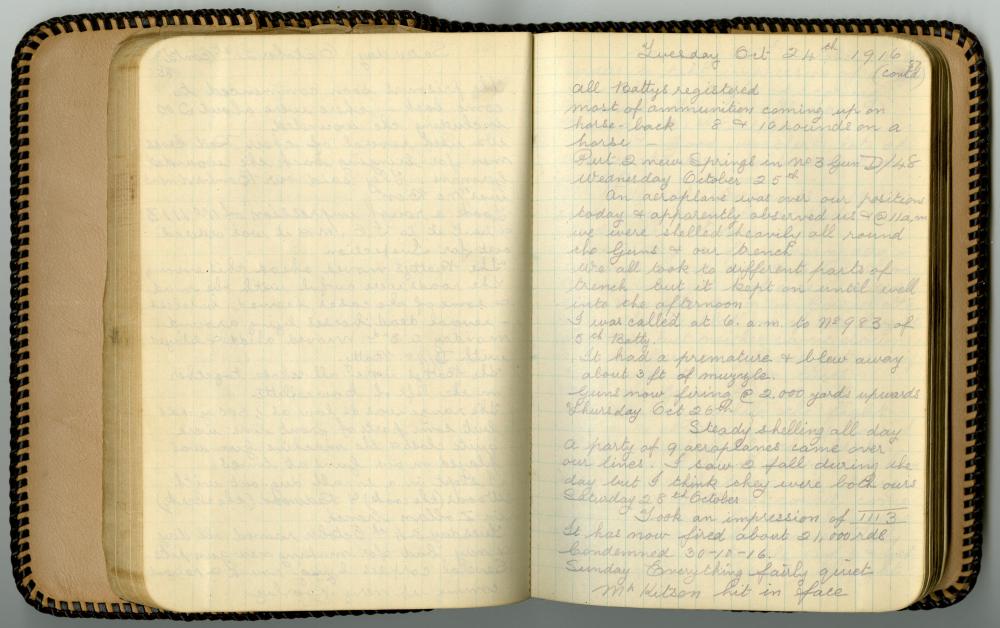 Tuesday Oct 24th 1916
(contd)
all Battys registered
most of ammunition coming up on
horse-back 8 & 10 rounds on a
horse -
Put 2 new Springs in No 3 Gun D/48
Wednesday October 25th
An aeroplane was over our positions
today & apparently observed us & @ 11 a.m
we were shelled heavily all round
the Guns & our trench
We all took to different parts of
trench but it kept on until well
into the afternoon
I was called at 6. a.m. to No 983 of
5th Batty.
It had a premature & blew away
about 3 ft of muzzle.
Guns now firing @ 2.000 yards upwards
Thursday Oct 26th
Steady shelling all day
A party of 9 aeroplanes came over
our lines. I saw 2 fall during the
day but I think they were both ours
Saturday 28th October
Took an impression of 1113
It has now fired about 21,000 rds
Condemned 30-10-16.
Sunday Everything fairly quiet
Mr Kitson hit in face